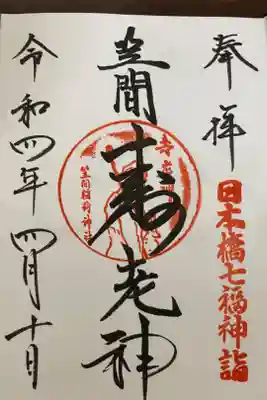 奉拝
日本橋七福神詣
笠間寿老神
笠間稲荷神社
令和四年四月十日